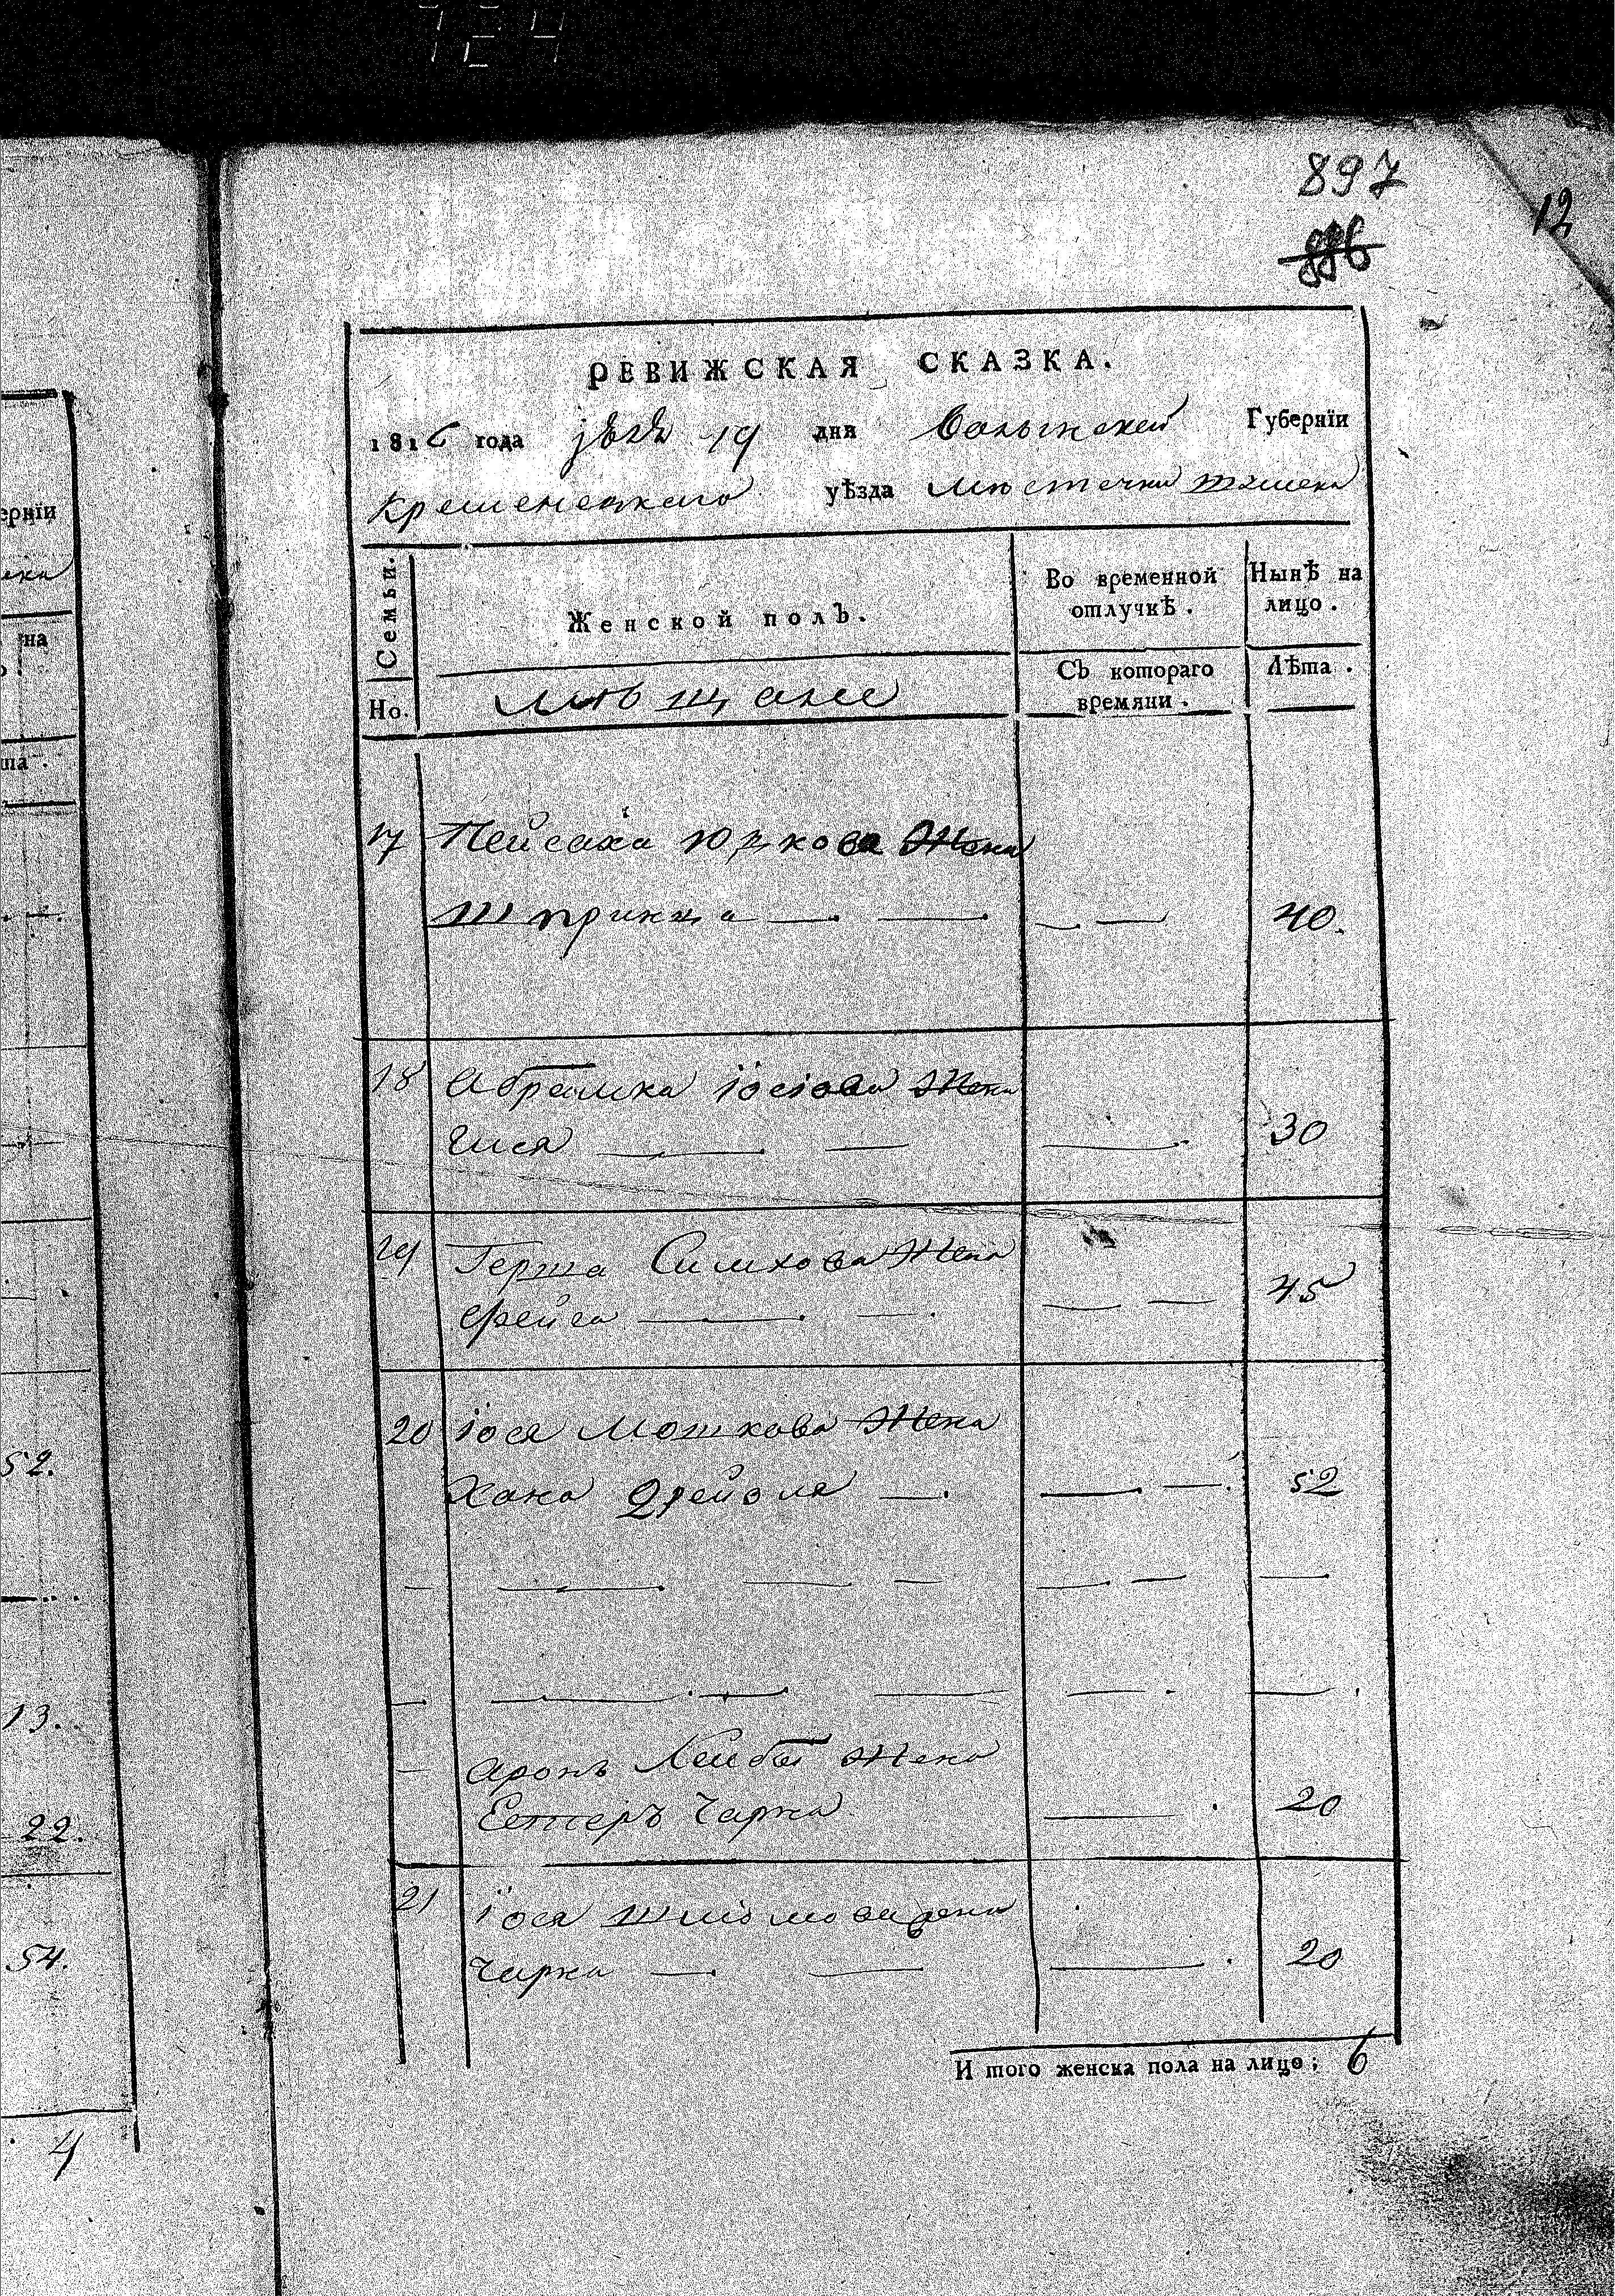 724
897
12
886
РЕВИЖСКАЯ СКАЗКА.
1816 года 19 дня Волынской Губернїи
Кременецкаго уѣзда Местечка
Семьи. Женской полъ. Во временной отлучкѣ. Нынѣ на лицо.
Но. Мѣщане Съ котораго времяни. Лѣта.
17 Пейсаха Юдкова Жена
Шпринца — — — — 40.
18 Абрамка Іосіова Жена
— — — 30
19 Герша Симхова Жена
Фейга — — — — 45
20 Іося Мошкова Жена
Хана Дрейзля — — — 52
— — — — — — —
— — — — — — —
— Аронъ Лейбы Жена
Естеръ Чарна — 20
21 Іося Шліомови жена
Чарна — — — 20
И того женска пола на лицо; 6
ернїи
на
ша.
52.
13.
22.
54.
4